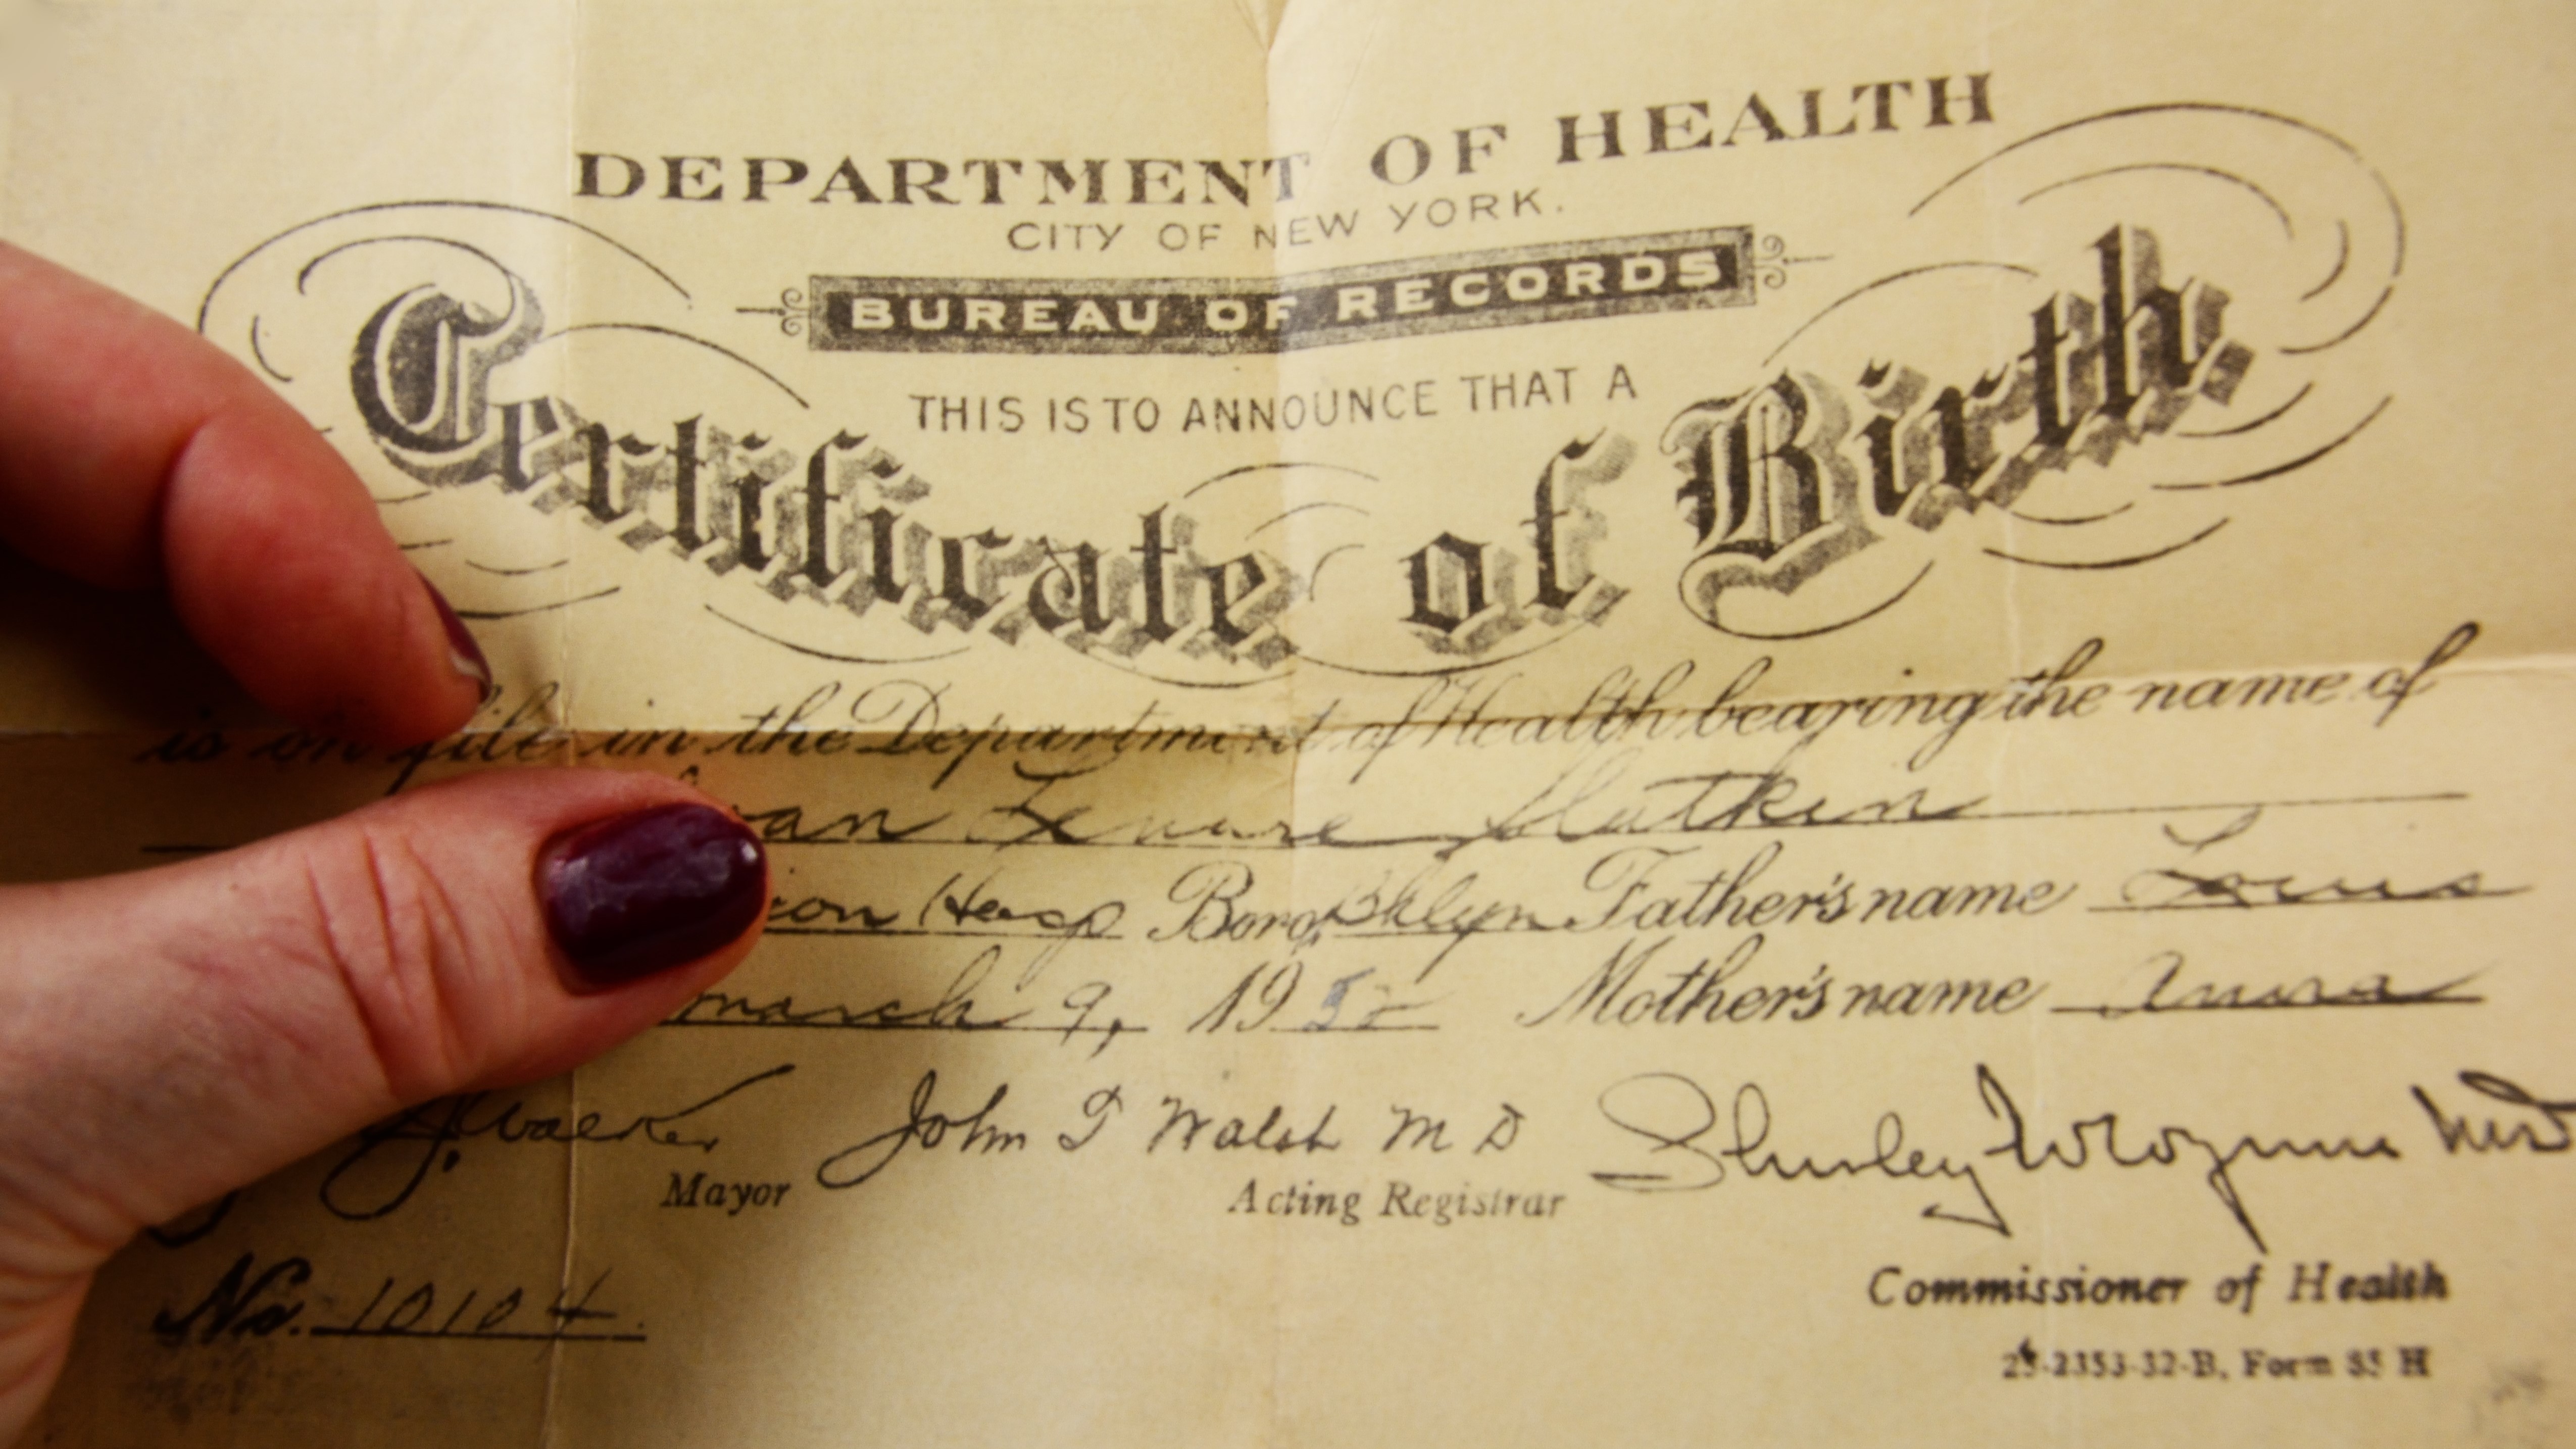 DEPARTMENT OF HEALTH
CITY OF NEW YORK.
BUREAU OF RECORDS
THIS IS TO ANNOUNCE THAT A
Certificate of Birth
is on file in the Department of Health bearing the name of
Boro. Bklyn Father's name Louis
march 9, 19 Mother's name Anna
J. Walker John T Walsh M D Shirley W Wynne MD
Mayor Acting Registrar
Commissioner of Health
No. 10104.
2353-32-B, Form 85 H